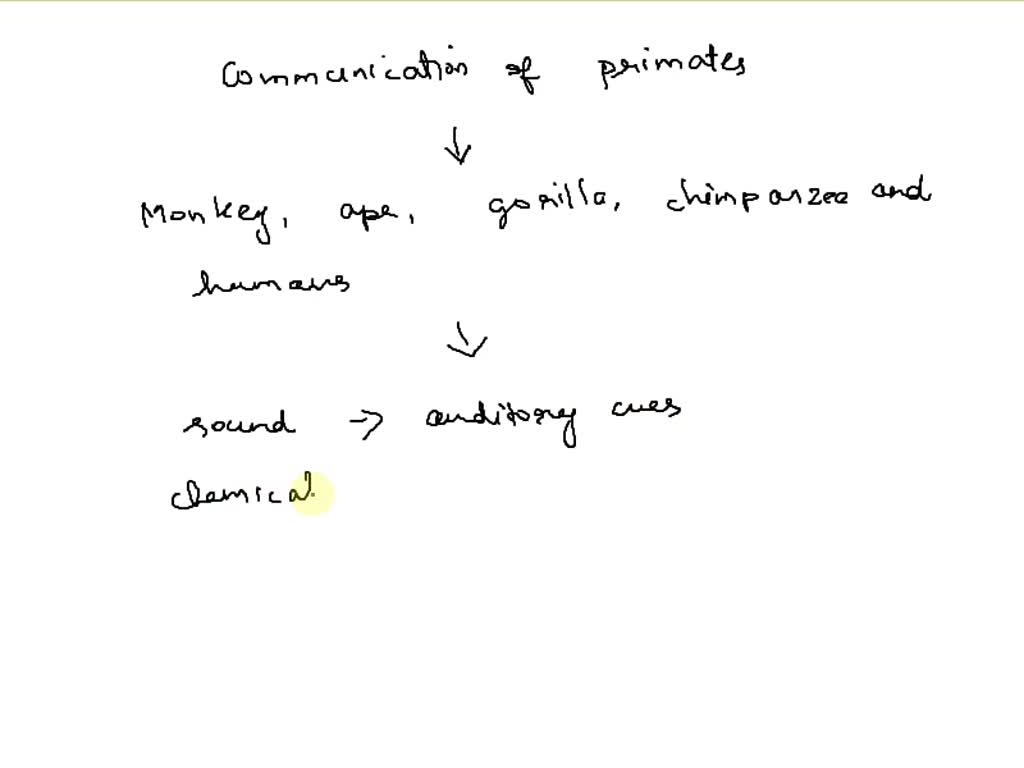 Communication of primates
↓
Monkey, ape, gorilla, chimpanzee and
humans
↓
sound → auditory cues
chemical